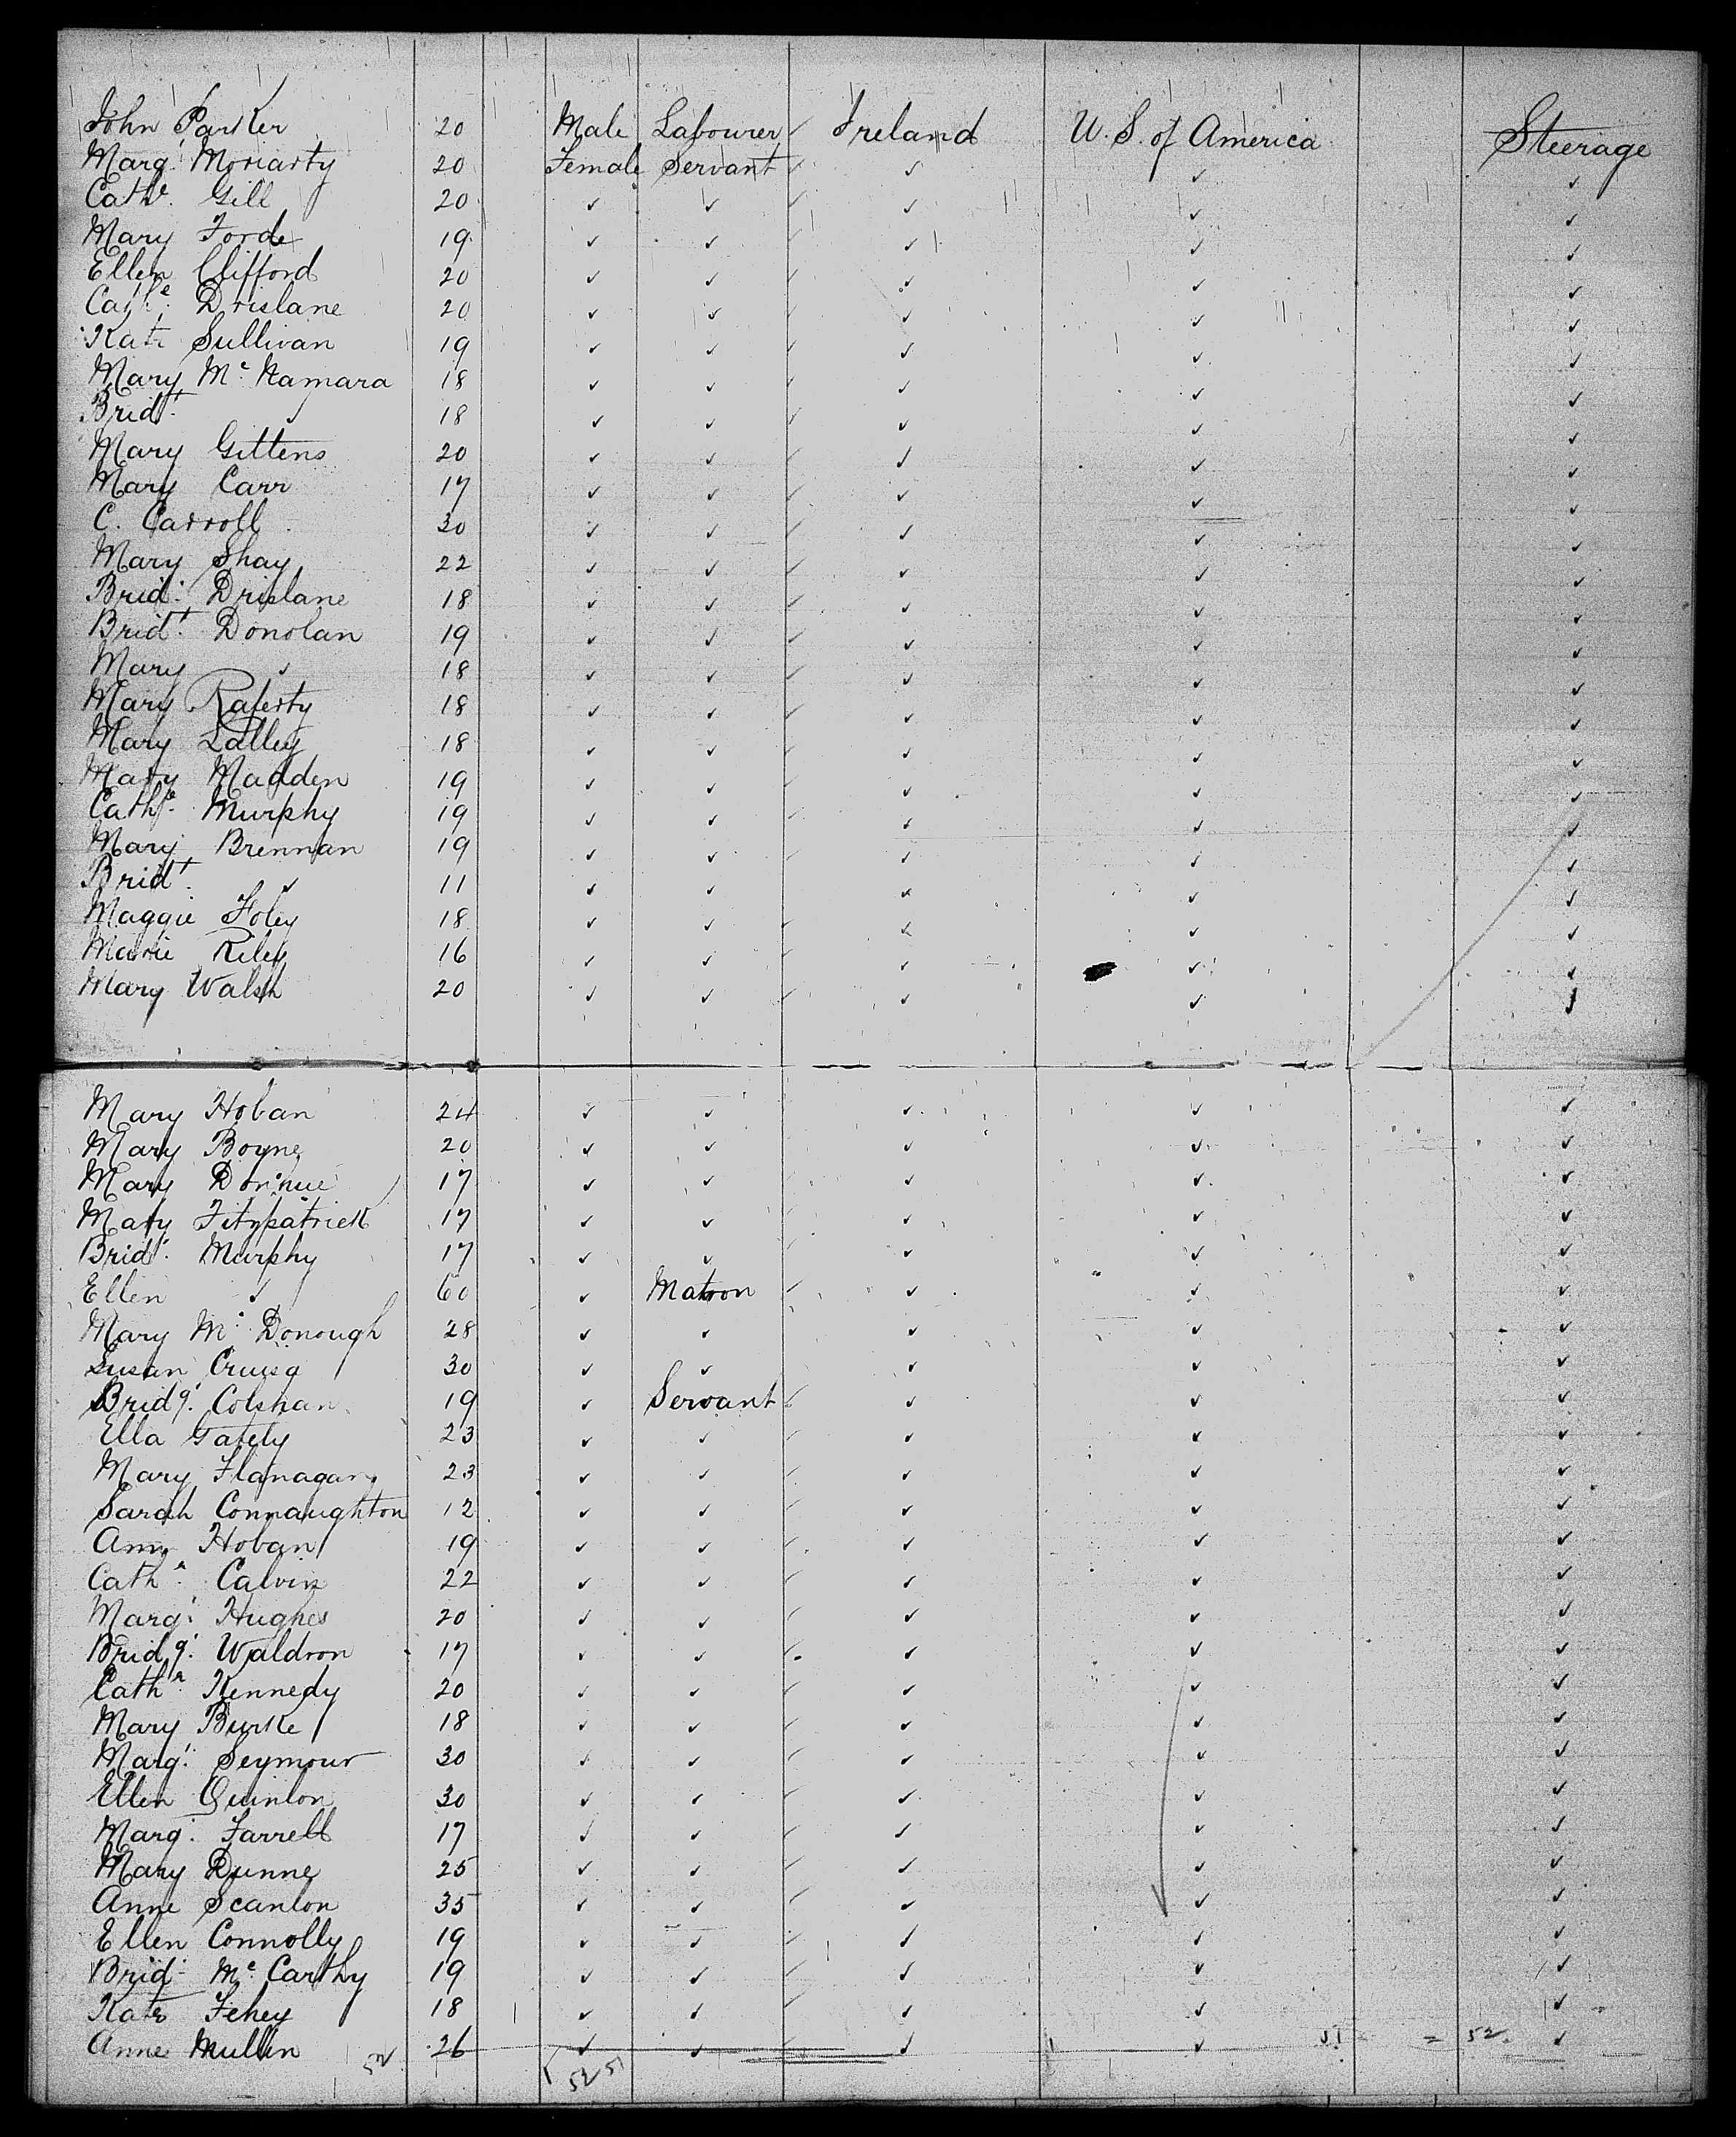 John Parker 20 Male Labourer ✓ Ireland U. S. of America Steerage
Marg.t Moriarty 20 Female Servant ✓ ✓ ✓ ✓
Cath.e Gill 20 ✓ ✓ ✓ ✓ ✓ ✓
Mary Forde 19 ✓ ✓ ✓ ✓ ✓ ✓
Ellen Clifford 20 ✓ ✓ ✓ ✓ ✓ ✓
Cath.e Drislane 20 ✓ ✓ ✓ ✓ ✓ ✓
Kate Sullivan 19 ✓ ✓ ✓ ✓ ✓ ✓
Mary Mc Namara 18 ✓ ✓ ✓ ✓ ✓ ✓
Brid.t ✓ 18 ✓ ✓ ✓ ✓ ✓ ✓
Mary Gittens 20 ✓ ✓ ✓ ✓ ✓ ✓
Mary Carr 17 ✓ ✓ ✓ ✓ ✓ ✓
C. Carroll 30 ✓ ✓ ✓ ✓ ✓ ✓
Mary Shay 22 ✓ ✓ ✓ ✓ ✓ ✓
Brid.t Drislane 18 ✓ ✓ ✓ ✓ ✓ ✓
Brid.t Donolan 19 ✓ ✓ ✓ ✓ ✓ ✓
Mary ✓ 18 ✓ ✓ ✓ ✓ ✓ ✓
Mary Raferty 18 ✓ ✓ ✓ ✓ ✓ ✓
Mary Lalley 18 ✓ ✓ ✓ ✓ ✓ ✓
Mary Madden 19 ✓ ✓ ✓ ✓ ✓ ✓
Cath.e Murphy 19 ✓ ✓ ✓ ✓ ✓ ✓
Mary Brennan 19 ✓ ✓ ✓ ✓ ✓ ✓
Brid.t ✓ 11 ✓ ✓ ✓ ✓ ✓
Maggie Foley 18 ✓ ✓ ✓ ✓ ✓ ✓
Marie Riley 16 ✓ ✓ ✓ ✓ ✓ ✓
Mary Walsh 20 ✓ ✓ ✓ ✓ ✓ ✓
Mary Hoban 24 ✓ ✓ ✓ ✓ ✓
Mary Boyne 20 ✓ ✓ ✓ ✓ ✓
Mary 17 ✓ ✓ ✓ ✓ ✓
Mary Fitzpatrick 17 ✓ ✓ ✓ ✓ ✓
Brid.t Murphy 17 ✓ ✓ ✓ ✓ ✓
Ellen ✓ 60 ✓ Matron ✓ ✓ ✓ ✓
Mary Mc Donough 28 ✓ ✓ ✓ ✓ ✓
Susan 30 ✓ ✓ ✓ ✓ ✓
Bridg.t 19 ✓ Servant ✓ ✓ ✓ ✓
Ella Gately 23 ✓ ✓ ✓ ✓ ✓ ✓
Mary Flanagan 23 ✓ ✓ ✓ ✓ ✓ ✓
Sarah Connaughton 12 ✓ ✓ ✓ ✓ ✓ ✓
Ann Hoban 19 ✓ ✓ ✓ ✓ ✓ ✓
Cath.n Calvin 22 ✓ ✓ ✓ ✓ ✓ ✓
Marg.t Hughes 20 ✓ ✓ ✓ ✓ ✓ ✓
Bridg.t Waldron 17 ✓ ✓ ✓ ✓ ✓
Cath.n Kennedy 20 ✓ ✓ ✓ ✓ ✓ ✓
Mary Burke 18 ✓ ✓ ✓ ✓ ✓ ✓
Marg.t Seymour 30 ✓ ✓ ✓ ✓ ✓ ✓
Ellen Quinlon 30 ✓ ✓ ✓ ✓ ✓ ✓
Marg.t Farrell 17 ✓ ✓ ✓ ✓ ✓ ✓
Mary Dunne 25 ✓ ✓ ✓ ✓ ✓ ✓
Anne Scanlon 35 ✓ ✓ ✓ ✓ ✓ ✓
Ellen Connolly 19 ✓ ✓ ✓ ✓ ✓ ✓
Brid.t Mc Carthy 19 ✓ ✓ ✓ ✓ ✓ ✓
Kate Fehey 18 ✓ ✓ ✓ ✓ ✓ ✓
Anne Mullin 26 ✓ ✓ ✓ ✓ 51 = 52 ✓
52 1 52 51